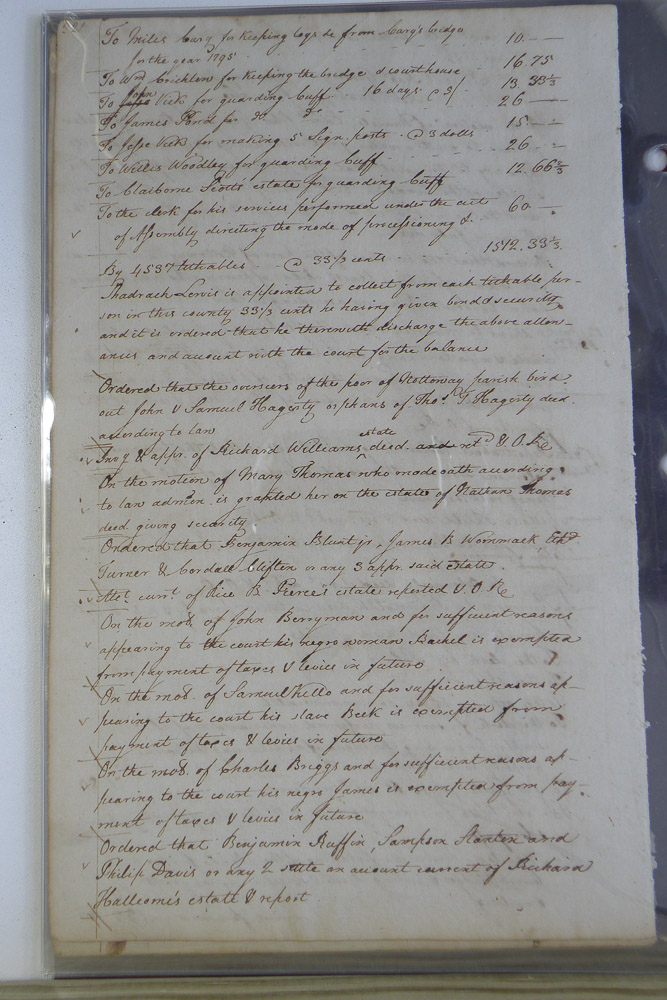 To Miles Cary for keeping logs &c from Cary's bridge 10 —
for the year 1795
To Wm Crichlow for keeping the bridge & courthouse 16 75
To John Vick for guarding Cuff 16 days @ 5/ 13 33⅓
To James Pond for Do Do 26 —
To Jesse Vick for making 5 Sign posts @ 3 dolls 15 —
To Willis Woodley for guarding Cuff 26 —
To Claiborne Scott's estate for guarding Cuff 12. 66⅔
To the clerk for his services performed under the act 60 —
of Assembly directing the mode of processioning &.
By 4537 titheables @ 33⅓ cents 1512. 33⅓
Shadrach Lewis is appointed to collect from each titheable per-
son in this county 33⅓ cents he having given bond & security
and it is ordered that he therewith discharge the above allow-
ances and account with the court for the balance
Ordered that the overseers of the poor of Nottoway parish bind
out John & Samuel Hagerty orphans of Thos. T Hagerty deed.
according to law
Invy & appr. of Richard Williams estate deed. and retd & O. R
On the motion of Mary Thomas who made oath according
to law admon. is granted her on the estate of Nathan Thomas
deed. giving security
Ordered that Benjamin Blunt jr, James B Wommack,
Turner & Cordall Clifton or any 3 appr. said estate.
Act. currt. of Rice B. Pierce's estate reported & O. R
On the mot. of John Berryman and for sufficient reasons
appearing to the court his negro woman Rachel is exempted
from payment of taxes & levies in future
On the mot. of Samuel Kello and for sufficient reasons ap-
pearing to the court his slave Beck is exempted from
payment of taxes & levies in future
On the mot. of Charles Briggs and for sufficient reasons ap-
pearing to the court his negro James is exempted from pay-
ment of taxes & levies in future
Ordered that Benjamin Ruffin, Sampson Stanton and
Philip Davis or any 2 state an account current of Richard
Hallcom's estate & report.